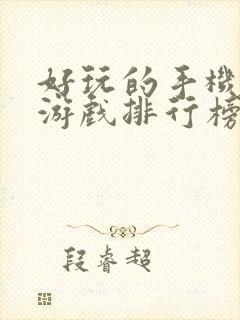 好玩的手機
游戏排行榜
段睿超